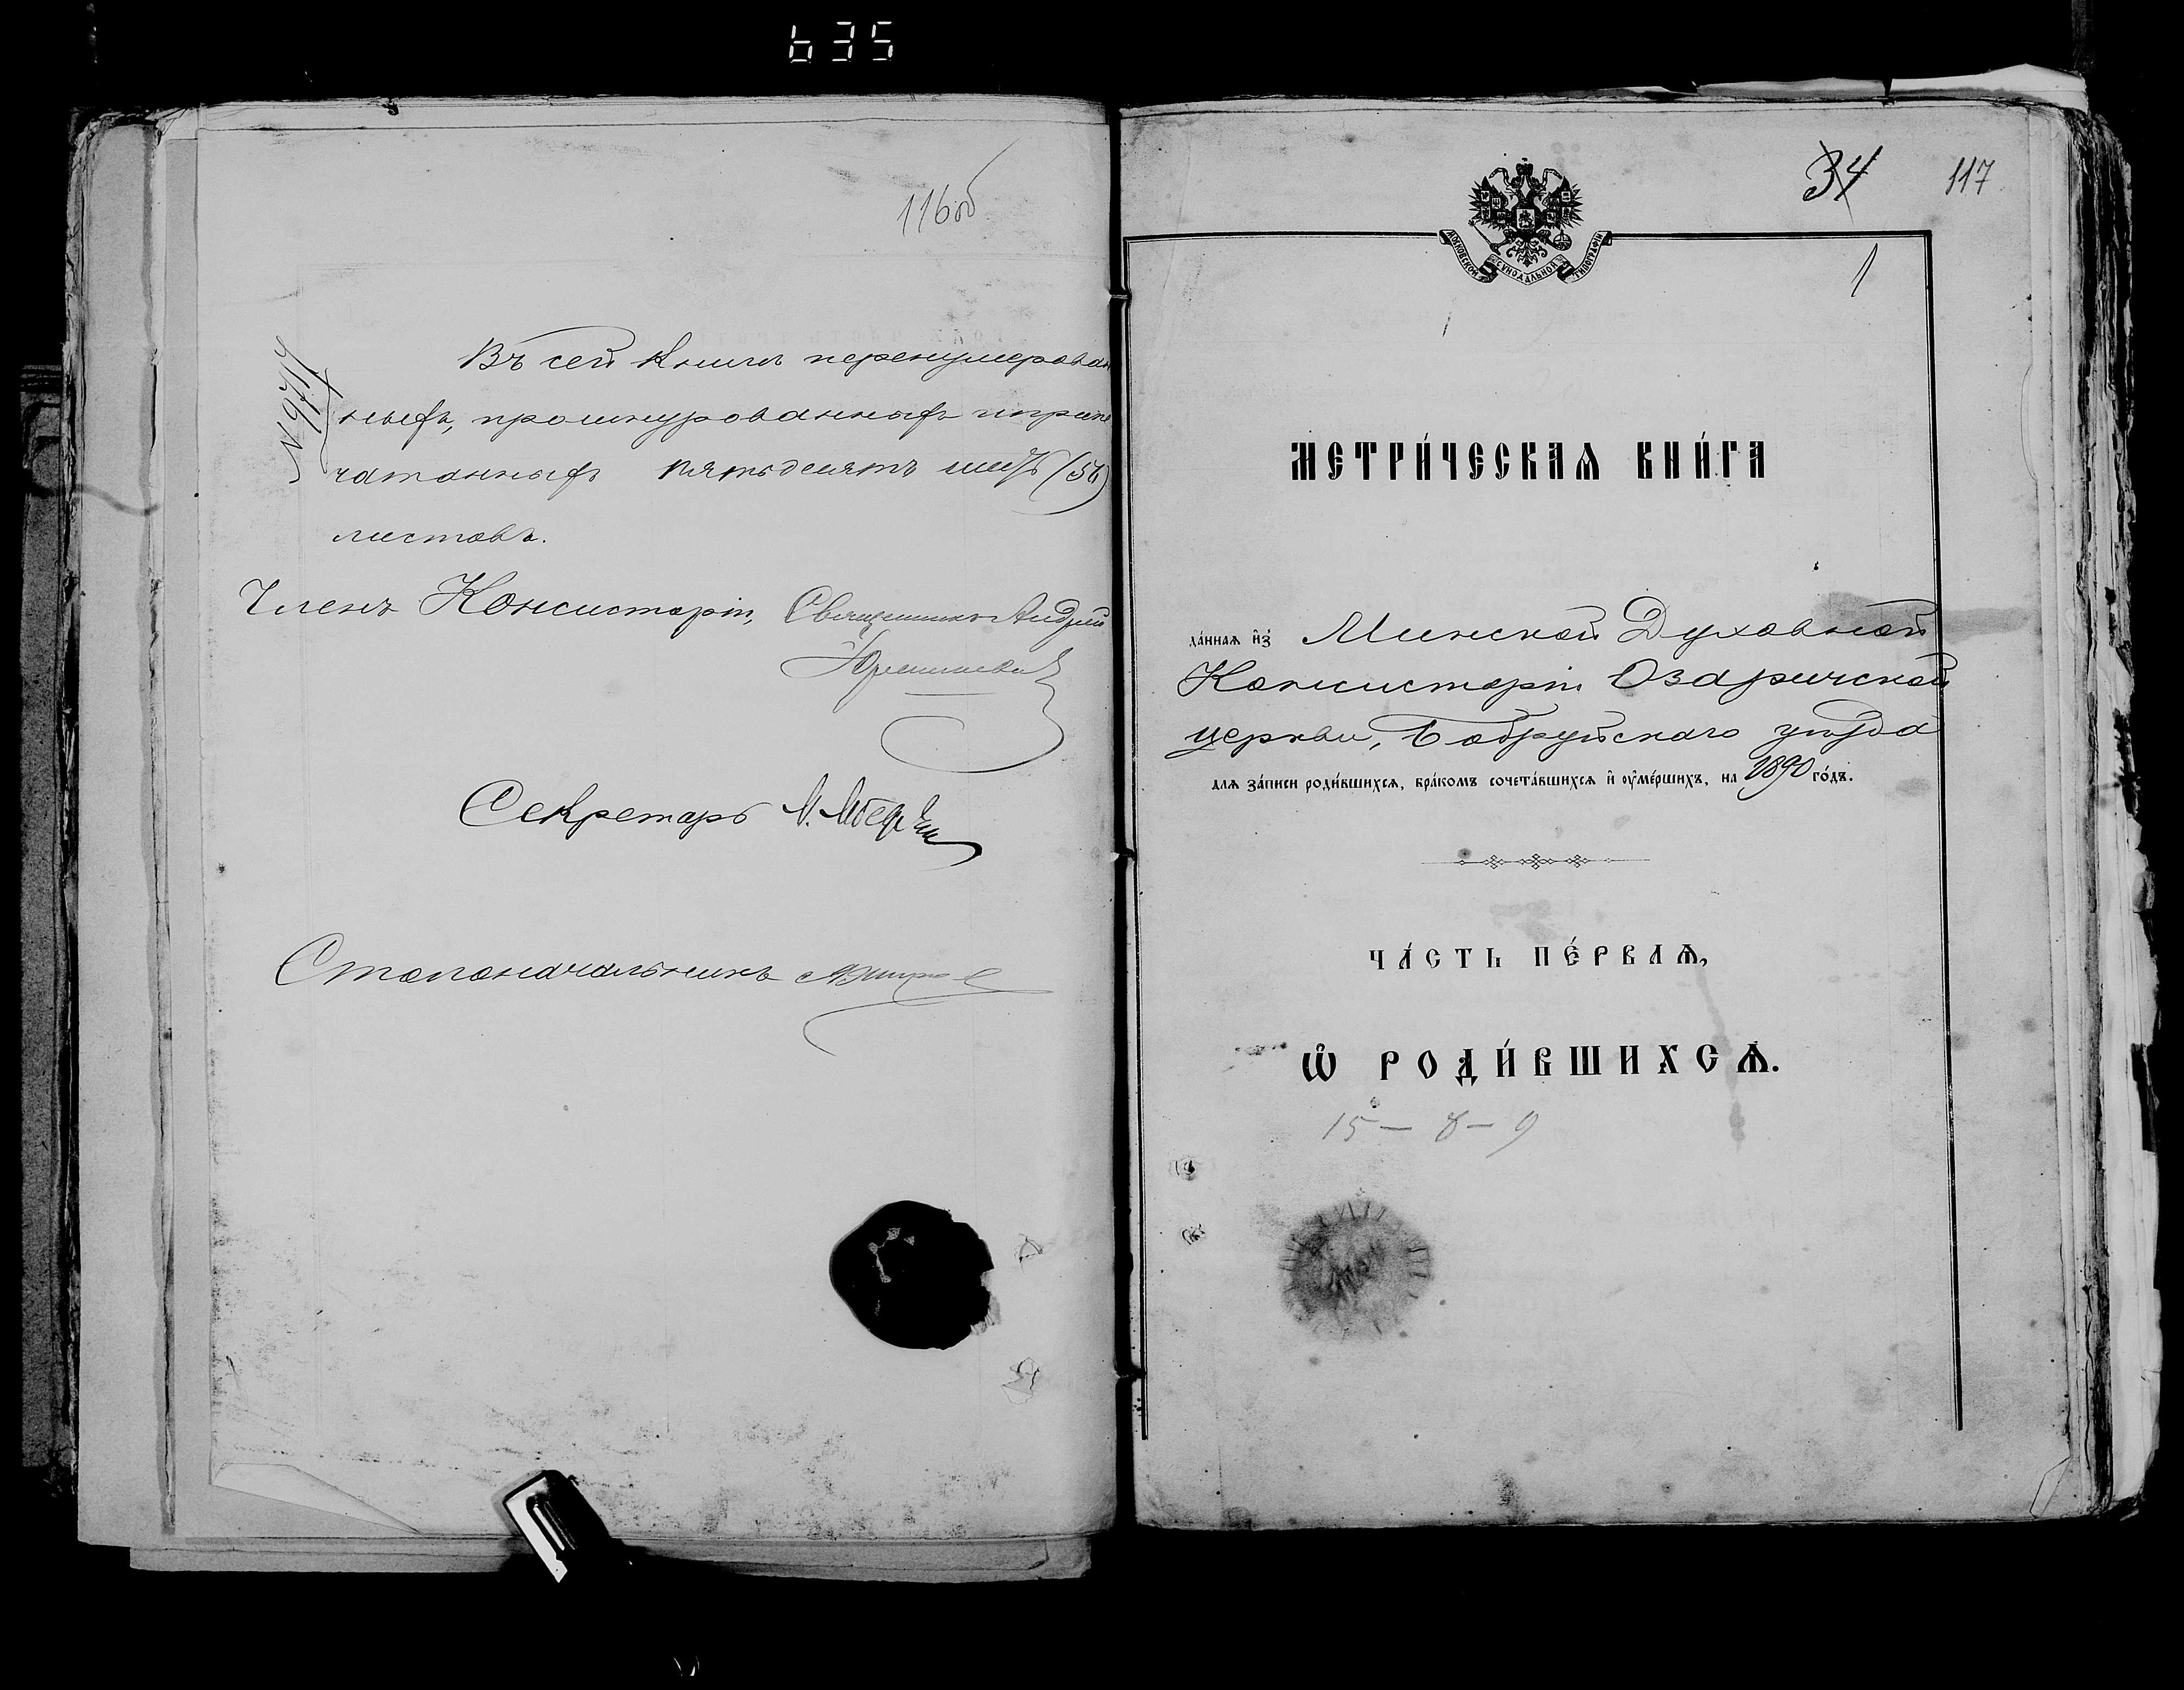 635
116 об
№ 9717
Въ сей книгѣ перенумерован
ныхъ, прошнурованныхъ и припе
чатанныхъ пятьдесятъ шесть (56)
листовъ.
Членъ Консисторіи, Священникъ Андрей
Секретарь
Столоначальникъ
34 117
МОСКОВСКОЙ СѴНОДАЛЬНОЙ ТИПОГРАФІИ
1
МЕТРИ́ЧЕСКАѦ КНИ́ГА
да́ннаѧ и҆з̾ Минской Духовной
Консисторіи Озаричской
церкви, Бобруйскаго уѣзда
длѧ за́писи роди́вшихсѧ, бра́комъ сочета́вшихсѧ и҆ ᲂу҆ме́ршихъ, на 1890 го́дъ.
ЧА́СТЬ ПЕ́РВАѦ,
Ѡ҆ РОДИ́ВШИХСѦ.
15 — 8 — 9